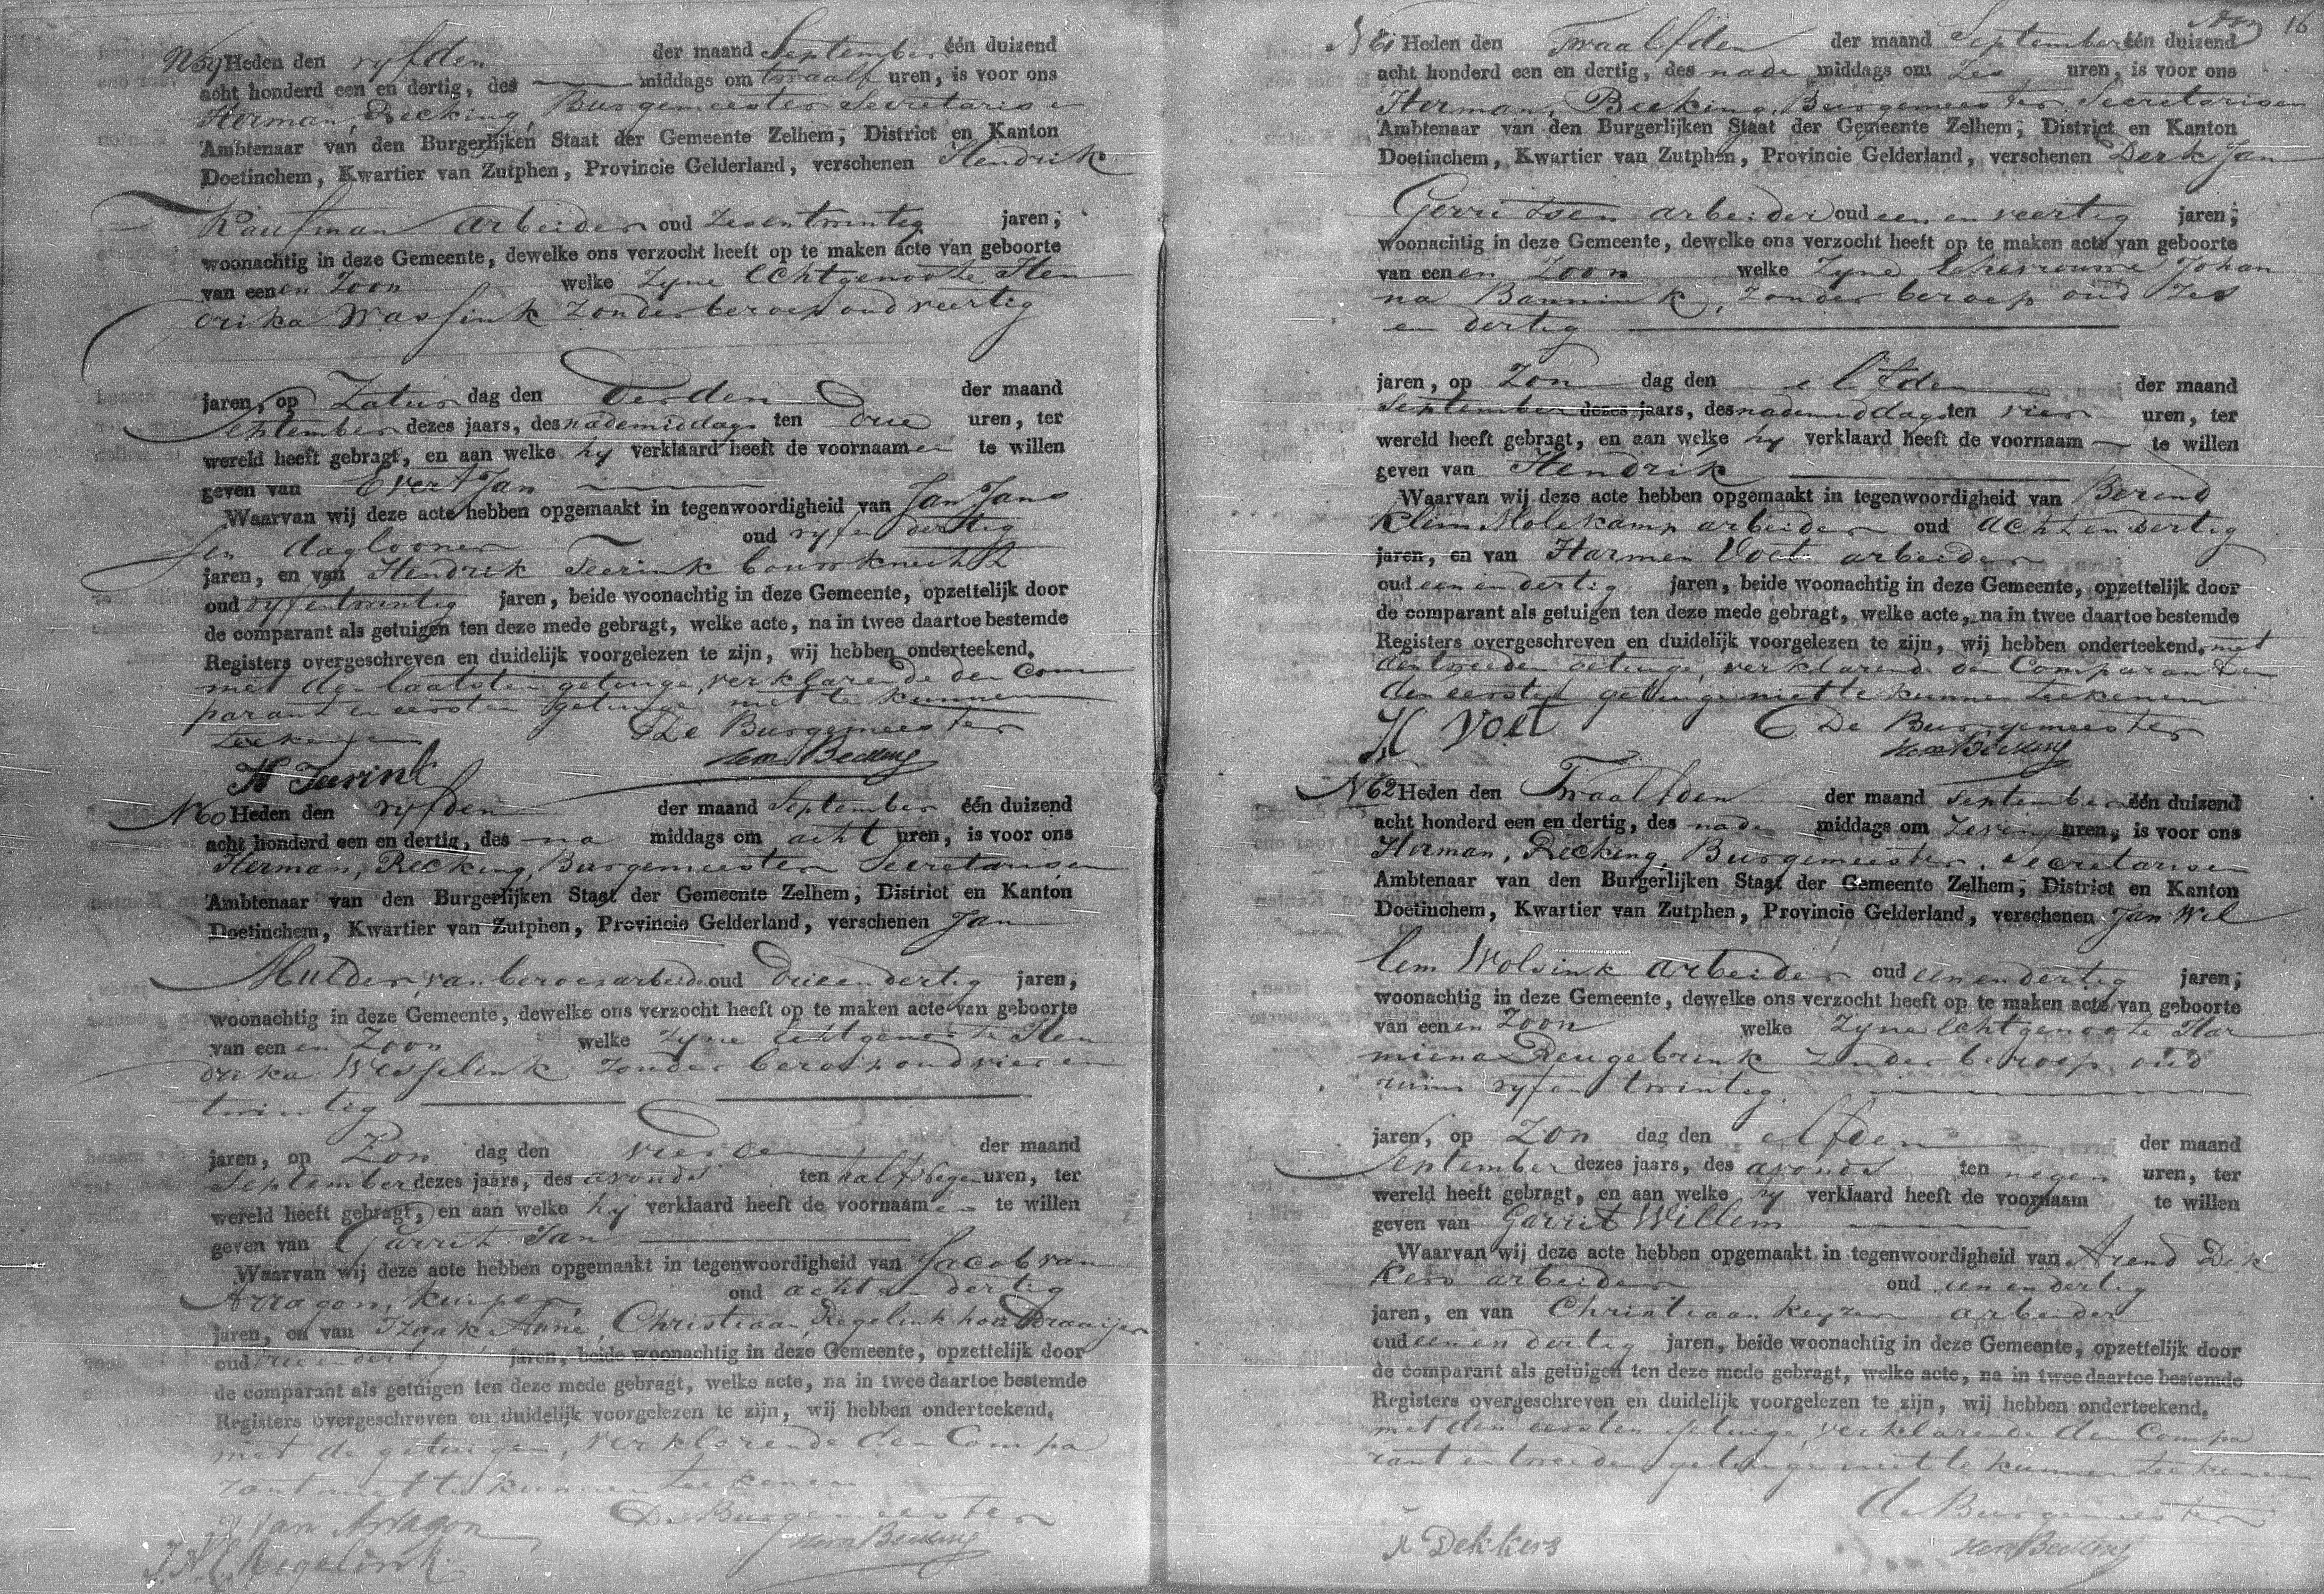 N 59 Heden den vyfden der maand September één duizend
acht honderd een en dertig, des middags om twaalf uren, is voor ons
Herman, Becking, Burgemeester Secretaris en
Ambtenaar van den Burgerlijken Staat der Gemeente Zelhem, District en Kanton
Doetinchem, Kwartier van Zutphen, Provincie Gelderland, verschenen Hendrik
Kaufman arbeider oud zesentwintig jaren,
woonachtig in deze Gemeente, dewelke ons verzocht heeft op te maken acte van geboorte
van een en Zoon welke Zyne Echtgenoote Hen
drika Wassink Zonder beroep oud veertig
jaren, op Zatur dag den Derden der maand
September dezes jaars, des nademiddags ten Drie uren, ter
wereld heeft gebragt, en aan welke hy verklaard heeft de voornaamen te willen
geven van Evert Jan
Waarvan wij deze acte hebben opgemaakt in tegenwoordigheid van Jan Jans
sen daglooner oud vyf en dertig
jaren, en van Hendrik Teerink bouwknecht
oud vyfentwintig jaren, beide woonachtig in deze Gemeente, opzettelijk door
de comparant als getuigen ten deze mede gebragt, welke acte, na in twee daartoe bestemde
Registers overgeschreven en duidelijk voorgelezen te zijn, wij hebben onderteekend.
met den laatsten getuige, verklarende den Com
parant en eersten getuige niet te kunnen
teekenen De Burgemeester
H Teerink Herm Becking
N 60 Heden den vyfden der maand September één duizend
acht honderd een en dertig, des na middags om acht uren, is voor ons
Herman, Becking, Burgemeester Secretaris en
Ambtenaar van den Burgerlijken Staat der Gemeente Zelhem, District en Kanton
Doetinchem, Kwartier van Zutphen, Provincie Gelderland, verschenen Jan
Mulder, van beroep arbeider oud drieendertig jaren,
woonachtig in deze Gemeente, dewelke ons verzocht heeft op te maken acte van geboorte
van een en Zoon welke zyne Echtgenoote Hen
drika Wesselink Zonder beroep oud vier en
twintig
jaren, op Zon dag den vierden der maand
September dezes jaars, des avonds ten half negen uren, ter
wereld heeft gebragt, en aan welke hij verklaard heeft de voornaamen te willen
geven van Gerrit Jan
Waarvan wij deze acte hebben opgemaakt in tegenwoordigheid van Jacob van
Arragon, kuiper, oud acht en dertig
jaren, en van Izaak Anne, Christiaan, Regelink houtdraaijer
oud drie en dertig jaren, beide woonachtig in deze Gemeente, opzettelijk door
de comparant als getuigen ten deze mede gebragt, welke acte, na in twee daartoe bestemde
Registers overgeschreven en duidelijk voorgelezen te zijn, wij hebben onderteekend.
met de getuigen, verklarende den Compa
rant niet te kunnen teekenen
J van Arragon De Burgemeester
Regelink Herm Becking
16
N 61 Heden den Twaalfden der maand September één duizend
acht honderd een en dertig, des nade middags om Zes uren, is voor ons
Herman, Becking, Burgemeester Secretaris en
Ambtenaar van den Burgerlijken Staat der Gemeente Zelhem, District en Kanton
Doetinchem, Kwartier van Zutphen, Provincie Gelderland, verschenen Derk Jan
Gerritsen arbeider oud een en veertig jaren,
woonachtig in deze Gemeente, dewelke ons verzocht heeft op te maken acte van geboorte
van een en Zoon welke Zyne Echevrouwe Johan
na Bannink, Zonder beroep oud Zes
en dertig
jaren, op Zon dag den elfden der maand
September dezes jaars, des nademiddags ten vier uren, ter
wereld heeft gebragt, en aan welke hy verklaard heeft de voornaam te willen
geven van Hendrik
Waarvan wij deze acte hebben opgemaakt in tegenwoordigheid van Berend
Klein Molekamp arbeider oud acht en dertig
jaren, en van Harmen Voet arbeider
oud een en dertig jaren, beide woonachtig in deze Gemeente, opzettelijk door
de comparant als getuigen ten deze mede gebragt, welke acte, na in twee daartoe bestemde
Registers overgeschreven en duidelijk voorgelezen te zijn, wij hebben onderteekend, met
den tweeden getuige, verklarende den Comparant en
den eersten getuige niet te kunnen teekenen
H Voet De Burgemeester
Herm Becking
N 62 Heden den Twaalfden der maand September één duizend
acht honderd een en dertig, des nade middags om zeven uren, is voor ons
Herman, Becking, Burgemeester, Secretaris en
Ambtenaar van den Burgerlijken Staat der Gemeente Zelhem, District en Kanton
Doetinchem, Kwartier van Zutphen, Provincie Gelderland, verschenen Jan Wil
lem Wolsink arbeider oud een en dertig jaren,
woonachtig in deze Gemeente, dewelke ons verzocht heeft op te maken acte van geboorte
van een en Zoon welke Zyne Echtgenoote Har
miena Reugebrink zonder beroep oud
ruim vyf en twintig
jaren, op Zon dag den elfden der maand
September dezes jaars, des avonds ten negen uren, ter
wereld heeft gebragt, en aan welke hy verklaard heeft de voornaam te willen
geven van Gerrit Willem
Waarvan wij deze acte hebben opgemaakt in tegenwoordigheid van Arend Dek
kers arbeider oud een en dertig
jaren, en van Christiaan Keyzer arbeider
oud een en dertig jaren, beide woonachtig in deze Gemeente, opzettelijk door
de comparant als getuigen ten deze mede gebragt, welke acte, na in twee daartoe bestemde
Registers overgeschreven en duidelijk voorgelezen te zijn, wij hebben onderteekend.
met den eersten getuige, verklarende den Compa
rant en tweeden getuige niet te kunnen teekenen
de Burgemeester
A Dekkers Herm Becking